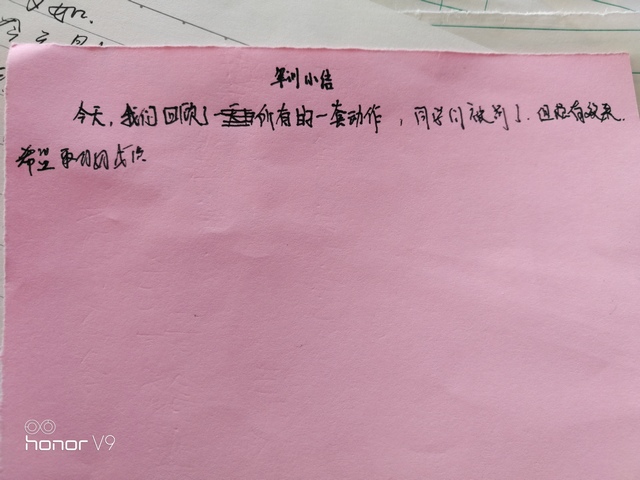 又如
军训小结
今天，我们回顾了所有的一套动作，同学们被罚了.但很有效果.
希望取得好成绩
honor V9